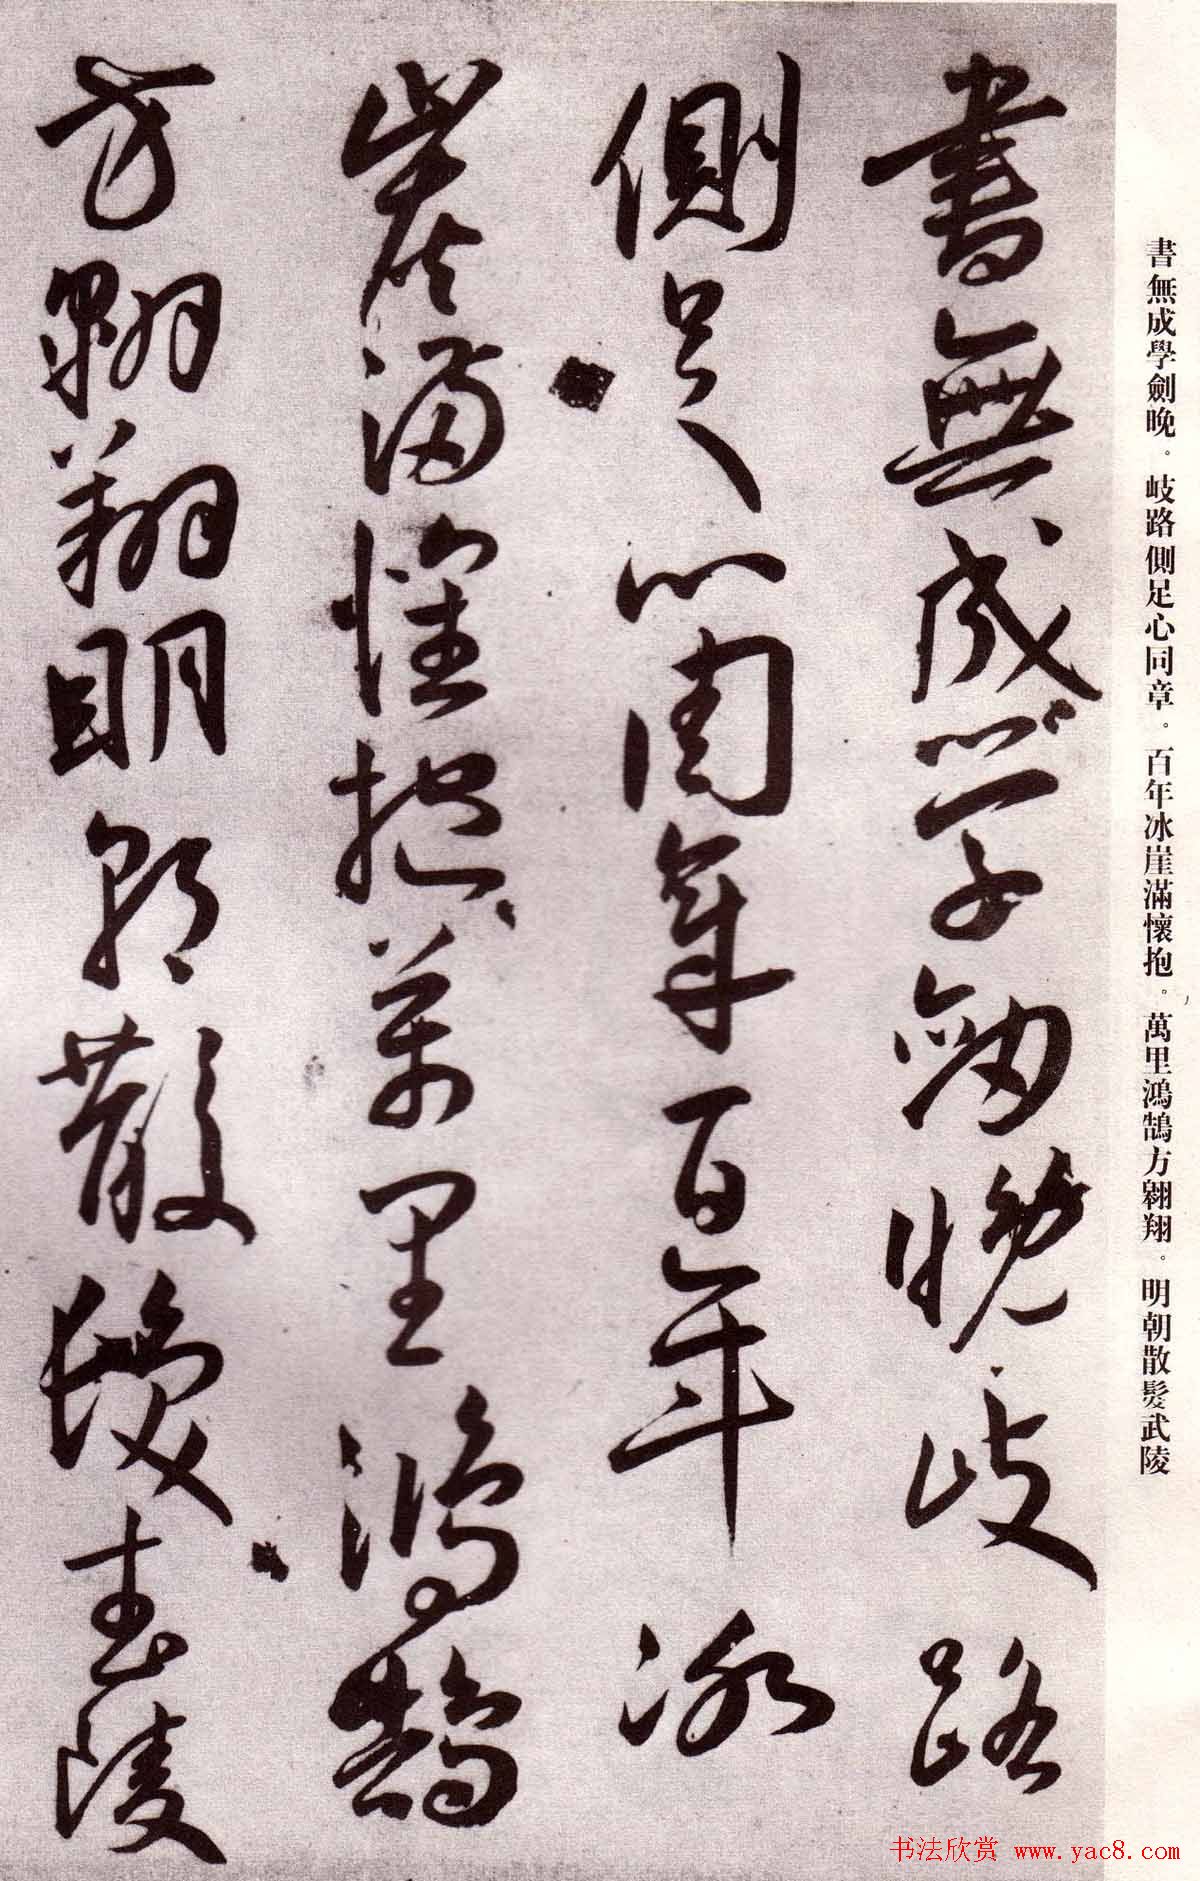 書無成學劍晚。岐路側足心同章。百年冰崖滿懷抱。萬里鴻鵠方翱翔。明朝散髮武陵
書無成學劍晚岐路
側足心周章百年冰
崖滿懷抱萬里鴻鵠
方翱翔明朝散髮武陵
书法欣赏 www.yac8.com